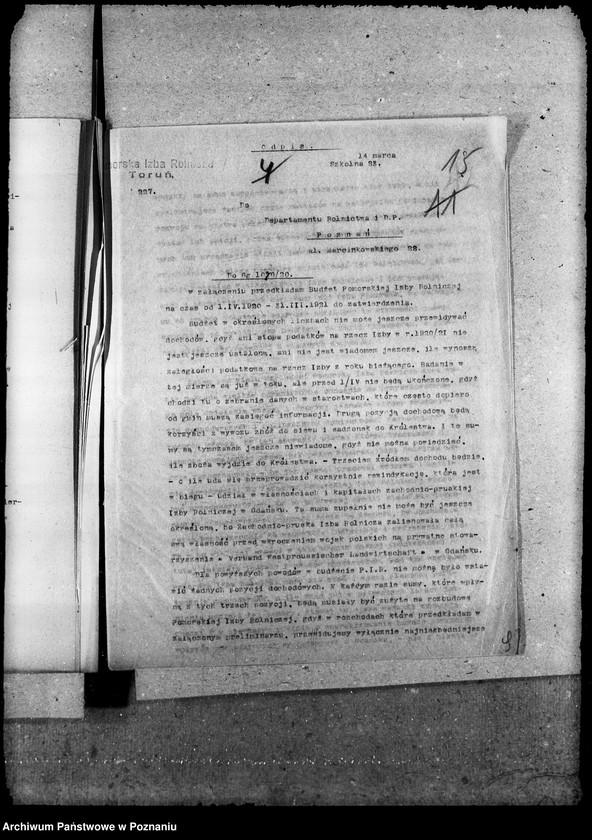 Odpis.
14 marca
Szkolna 22.
15
4
11
orska Izba Rolnicza
Toruń.
227.
Do
Departamentu Rolnictwa i D.P.
Poznań
al. Marcinkowskiego 22.
Do ng. 1070/20.
W załączeniu przedkładam Budżet Pomorskiej Izby Rolniczej
na czas od 1.IV.1920 - 31.III.1921 do zatwierdzenia.
Budżet w określonych liczbach nie może jeszcze przewidywać
dochodów, gdyż ani stopa podatków na rzecz Izby w r.1920/21 nie
jest jeszcze ustalona, ani nie jest wiadomem jeszcze, ile wynoszą
zaległości podatkowe na rzecz Izby z roku bieżącego. Badania w
tej mierze są już w toku, ale przed 1/IV nie będą ukończone, gdyż
chodzi tu o zebranie danych w starostwach, które często dopiero
od gmin muszą zasięgać informacji. Drugą pozycją dochodową będą
korzyści z wywozu zbóż do siewu i sadzonek do Królestwa. I te su-
my są tymczasem jeszcze niewiadome, gdyż nie można powiedzieć,
ile zboża wyjdzie do Królestwa. - Trzeciem źródłem dochodu będzie,
- o ile uda się przeprowadzić korzystnie rewindykację, która jest
w biegu - udział w własnościach i kapitałach zachodnio-pruskiej
Izby Rolniczej w Gdańsku. Ta suma zupełnie nie może być jeszcze
określona, bo Zachodnio-pruska Izba Rolnicza zalienowała całą
swą własność przed wkroczeniem wojsk polskich na prywatne stowa-
rzyszenie " Verband Westpreussischer Landwirtschaft " w Gdańsku.
Dla powyższych powodów w budżecie P.I.R. nie można było wsta-
wić żadnych pozycji dochodowych. W każdym razie sumy, które wpły-
ną z tych trzech pozycji, będą musiały być zużyte na rozbudowę
Pomorskiej Izby Rolniczej, gdyż w rozchodach które przedkładam w
załączonym preliminarzu, przewidujemy wyłącznie najniezbędniejsze
Archiwum Państwowe w Poznaniu